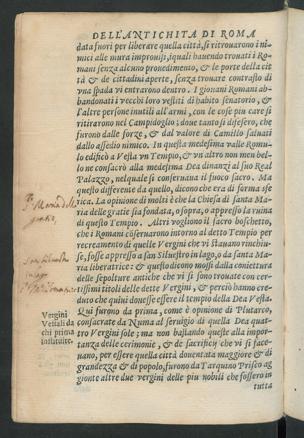 DELL'ANTICHITA DI ROMA
data fuori per liberare quella città, si ritrouarono i ni-
mici alle mura improuisi, iquali hauendo trouati i Ro-
mani senza alcuno prouedimento, & le porte della cit
tà & de cittadini aperte, senza trouare contrasto di
vna spada vi entrarono dentro. I giouani Romani ab-
bandonati i vecchi loro vestiti di habito senatorio, &
l'altre persone inutili all'armi, con le cose piu care si
ritirarono nel Campidoglio; doue tanto si difesero, che
furono dalle forze, & dal valore di Camillo saluati
dallo assedio nimico. In questa medesima valle Romu
lo edificò a Vesta vn Tempio, & vn altro non men bel-
lo ne consacrò alla medesima Dea dinanzi al suo Real
Palazzo, nel quale si conseruaua il fuoco sacro. Ma
questo differente da quello, dicono che era di forma sfe
rica. La opinione di molti è che la Chiesa di santa Ma
ria delle gratie sia fondata, o sopra, o appresso la ruina
di questo Tempio. Altri vogliono il sacro boschetto,
che i Romani cõseruarono intorno al detto Tempio per
recreamento di quelle Vergini che vi stauano rinchiu-
se, fosse appresso a san Siluestro in lago, o da santa Ma
ria liberatrice: & questo dicono mossi dalla coniettura
delle sepolture antiche che vi si sono trouate con cer-
tissimi titoli delle dette Vergini, & perciò hanno cre-
duto che quini douesse essere il tempio della Dea Vesta.
Qui furono da prima, come è opinione di Plutarco,
consacrate da Numa al seruigio di quella Dea qua-
tro Vergini sole; ma non bastando queste alla impor-
tanza delle cerimonie, & de sacrificij che vi si face-
uano, per essere quella città douentata maggiore & di
grandezza & di popolo, furono da Tarquino Prisco ag
gionte altre due vergini delle piu nobili che fossero in
tutta
Vergini
Vestali da
chi prima
instituite.